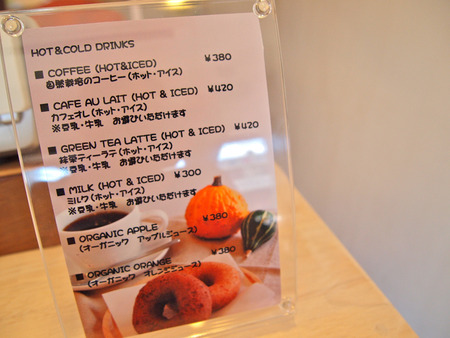 HOT&COLD DRINKS
■ COFFEE (HOT&ICED) ¥380
自然栽培のコーヒー(ホット・アイス)
■ CAFE AU LAIT (HOT & ICED) ¥420
カフェオレ(ホット・アイス)
※豆乳・牛乳 お選びいただけます
■ GREEN TEA LATTE (HOT & ICED) ¥420
抹茶ティーラテ(ホット・アイス)
※豆乳・牛乳 お選びいただけます
■ MILK (HOT & ICED) ¥300
ミルク(ホット・アイス)
※豆乳・牛乳 お選びいただけます
■ ORGANIC APPLE ¥380
(オーガニック アップルジュース)
■ ORGANIC ORANGE ¥380
(オーガニック オレンジジュース)